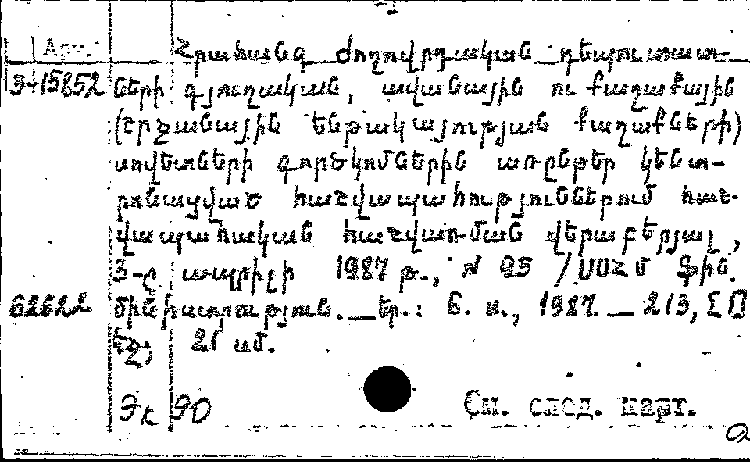 Арм. Հրահանգ ժողովրդական դեպուտատ-
Э-15852 ների գյուղական, ավանային ու քաղաքային
(շրջանային ենթակայության քաղաքների)
սովետների գործկոմներին առընթեր կենտ-
րոնացված հաշվապահություններում հաշ-
վապահական հաշվառման վերաբերյալ,
3-ը ապրիլի 1987 թ., N 95 /ՍՍՀՄ Ֆին.
62622 մինիստրություն. _ Եր.: Б. и., 1987. _ 213, [1]
էջ; 21 սմ.
Эк 90 См. след. карт.